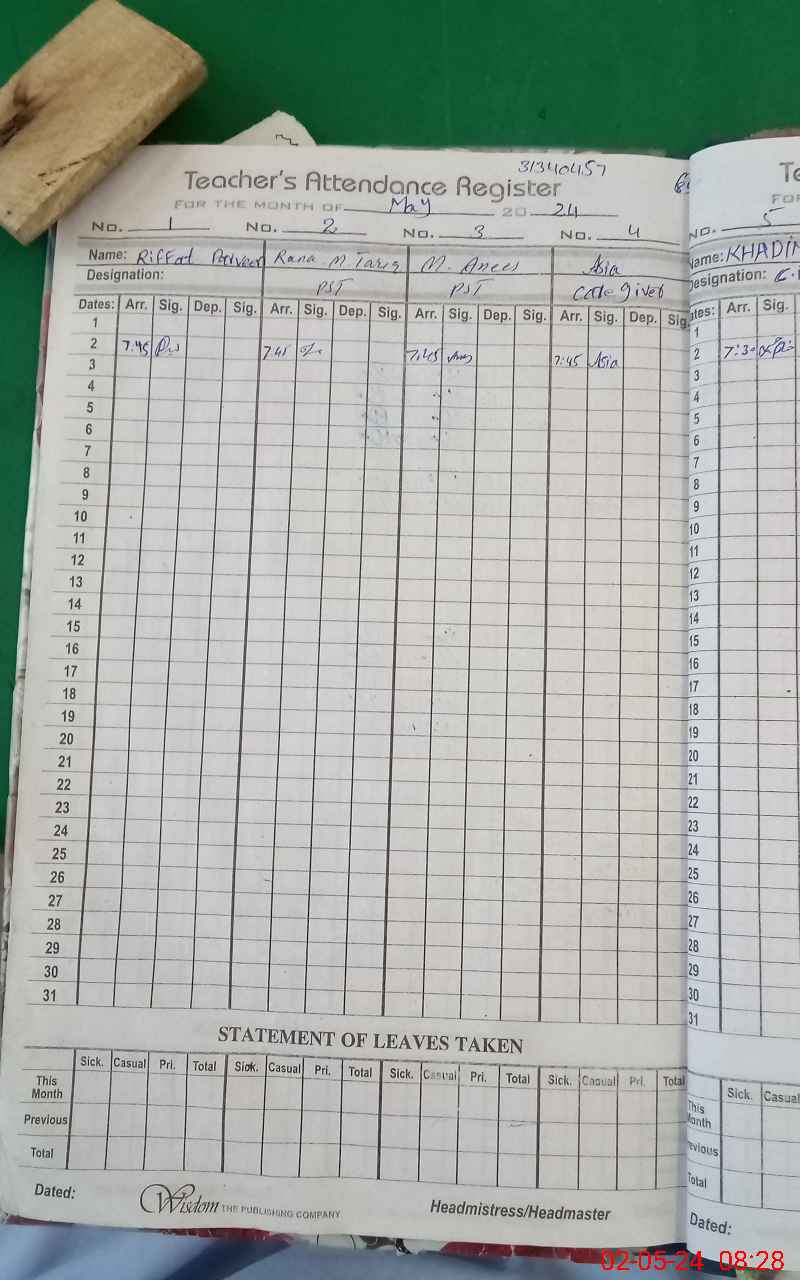 31340457
Teacher's Attendance Register
FOR THE MONTH OF May 20 24
No. 1 No. 2 No. 3 No. 4
Name: Riffat Parveen Rana M Tariq M. Anees Asia
Designation: PST PST Care giver
Dates: Arr. Sig. Dep. Sig. Arr. Sig. Dep. Sig. Arr. Sig. Dep. Sig. Arr. Sig. Dep. Sig.
1
2 7:45 7:45 7:45 7:45 Asia
3
4
5
6
7
8
9
10
11
12
13
14
15
16
17
18
19
20
21
22
23
24
25
26
27
28
29
30
31
STATEMENT OF LEAVES TAKEN
Sick. Casual Pri. Total Sick. Casual Pri. Total Sick. Casual Pri. Total Sick. Casual Pri. Total
This Month
Previous
Total
Dated: Wisdom THE PUBLISHING COMPANY Headmistress/Headmaster
No. 5
Name: KHADIN
Designation:
Arr. Sig.
1
2 7:30
3
4
5
6
7
8
9
10
11
12
13
14
15
16
17
18
19
20
21
22
23
24
25
26
27
28
29
30
31
Sick. Casual
This Month
Previous
Total
Dated:
02-05-24 08:28